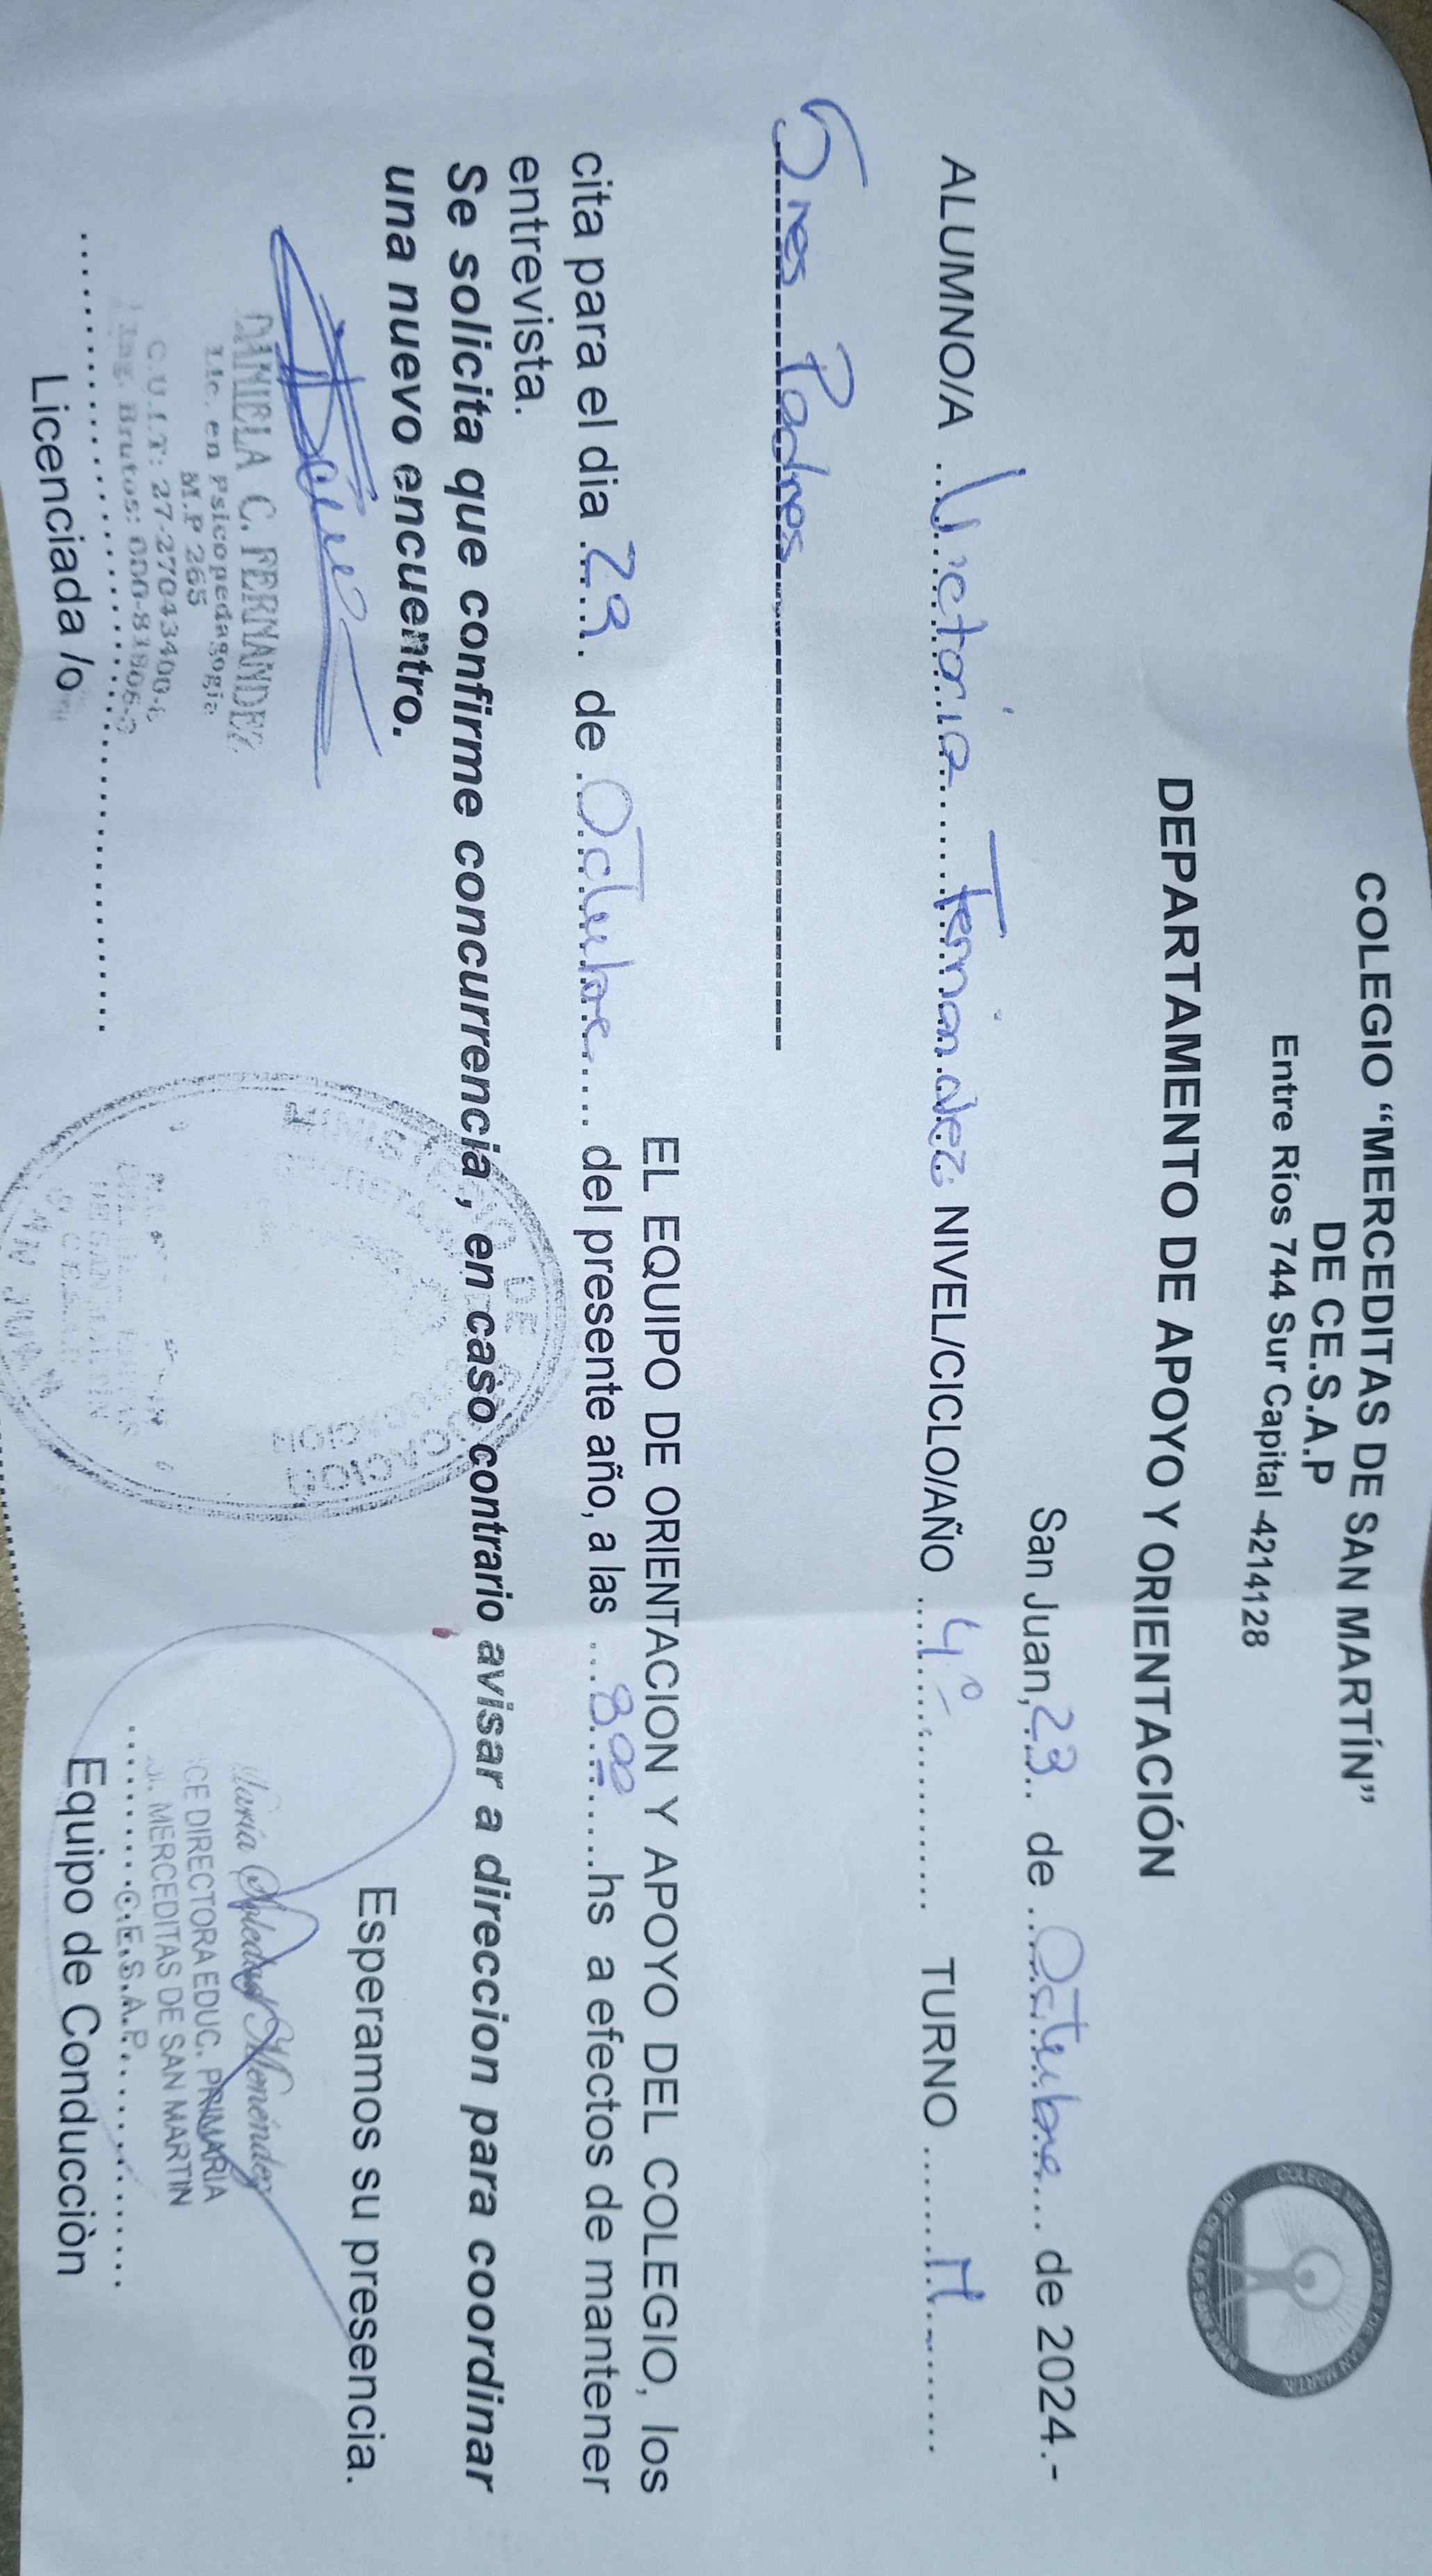 COLEGIO “MERCEDITAS DE SAN MARTÍN”
DE CE.S.A.P
Entre Ríos 744 Sur Capital -4214128
DEPARTAMENTO DE APOYO Y ORIENTACIÓN
San Juan, 23 de Octubre de 2024.-
ALUMNO/A Victoria Fernandez NIVEL/CICLO/AÑO 4° TURNO M
Sres Padres
EL EQUIPO DE ORIENTACION Y APOYO DEL COLEGIO, los
cita para el dia 29 de Octubre del presente año, a las 8:00 hs a efectos de mantener
entrevista.
Se solicita que confirme concurrencia, en caso contrario avisar a direccion para coordinar
una nuevo encuentro.
Esperamos su presencia.
DANIELA C. FERNANDEZ
Lic. en Psicopedagogia
M.P 265
C.U.I.T: 27-27043400-
Ing. Brutos:
Licenciada /o
MINISTERIO DE
SAN JUAN
María Soledad Menéndez
CE DIRECTORA EDUC. PRIMARIA
MERCEDITAS DE SAN MARTIN
C.E.S.A.P.
Equipo de Conducciòn